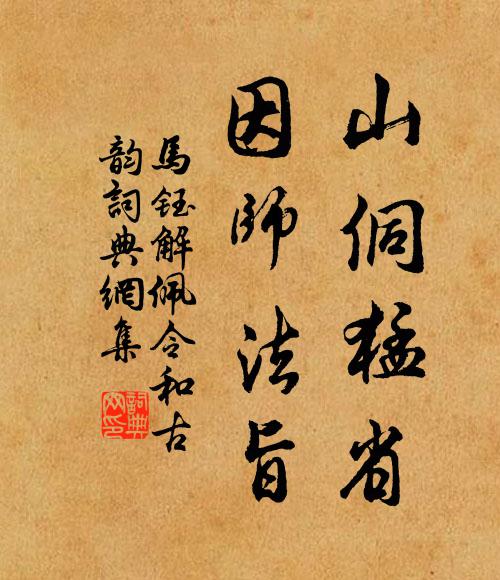 山侗猛省
因師法旨
馬鈺解佩令和古
韵詞典網集
詞典
网印